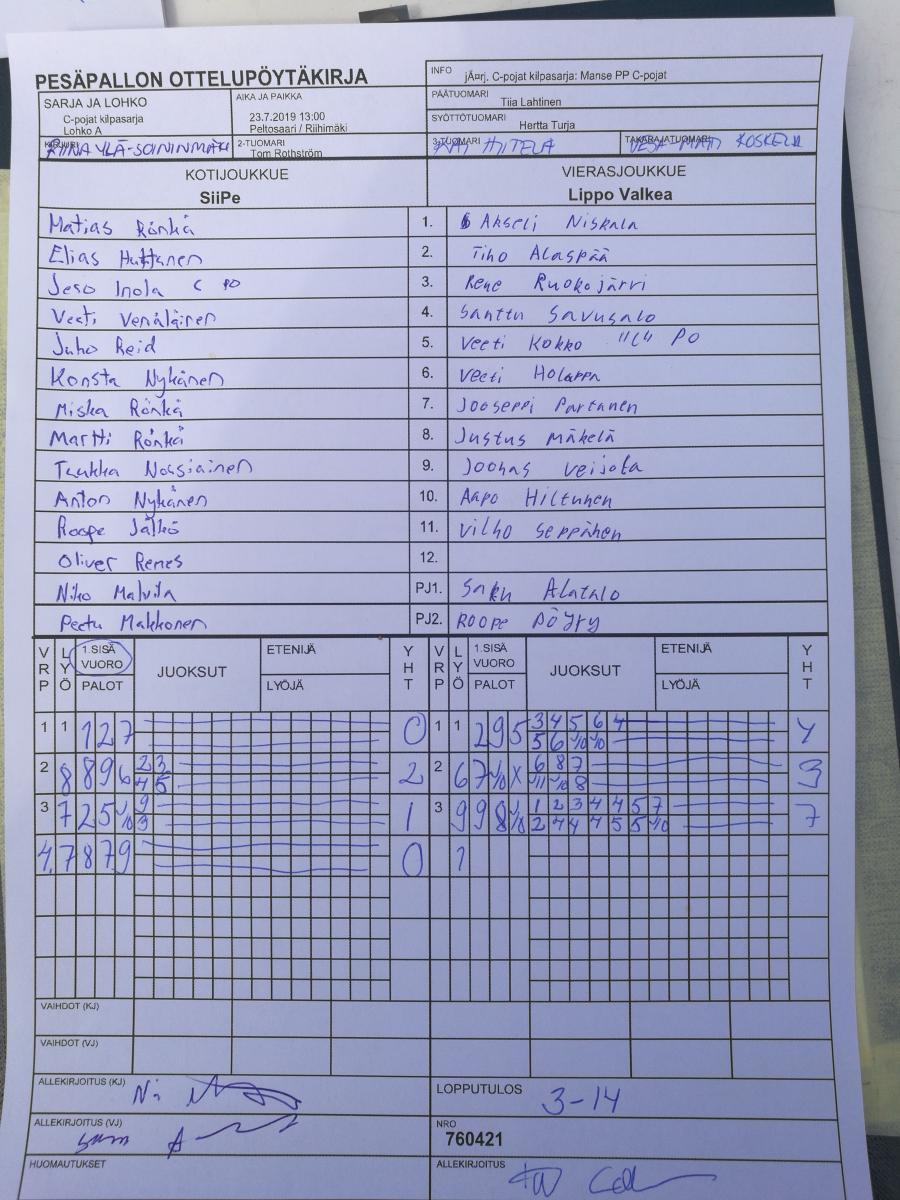 PESÄPALLON OTTELUPÖYTÄKIRJA
INFO jÃ¤rj. C-pojat kilpasarja: Manse PP C-pojat
SARJA JA LOHKO
C-pojat kilpasarja
Lohko A
AIKA JA PAIKKA
23.7.2019 13:00
Peltosaari / Riihimäki
PÄÄTUOMARI Tiia Lahtinen
SYÖTTÖTUOMARI Hertta Turja
RIINA YLÄ-SOININMÄKI
2-TUOMARI Tom Rothström
3-TUOMARI HIITELÄ
TAKARAJATUOMARI VESA-MATTI KOSKELA
KOTIJOUKKUE VIERASJOUKKUE
SiiPe Lippo Valkea
Matias Rönkä 1. Akseli Niskala
Elias Huttunen 2. Tiho Alaspää
Jeso Inola C PO 3. Rene Ruokojärvi
Veeti Venäläinen 4. Santtu Savusalo
Juho Reid 5. Veeti Kokko "C" PO
Konsta Nykänen 6. Veeti Holappa
Miska Rönkä 7. Jooseppi Partanen
Martti Rönkä 8. Justus Mäkelä
Tuukka Nousiainen 9. Joonas Veijola
Anton Nykänen 10. Aapo Hiltunen
Roope Jälkö 11. Vilho Seppänen
Oliver Renes 12.
Niko Malvila PJ1. Saku Alatalo
Peetu Makkonen PJ2. Roope Pöyry
VRP LYÖ 1.SISÄ VUORO PALOT JUOKSUT ETENIJÄ LYÖJÄ YHT VRP LYÖ 1.SISÄ VUORO PALOT JUOKSUT ETENIJÄ LYÖJÄ YHT
1 1 1 2 7 0 1 1 2 9 5 3 4 5 6 4 4
5 6 10 10
2 8 8 9 6 2 3 2 2 6 7 10 X 6 8 7 3
4 5 11 10 8
3 7 2 5 10 9 1 3 9 9 8 10 1 2 3 4 4 5 7 7
3 2 4 4 4 5 5 10
4. 7 8 7 9 0 1
VAIHDOT (KJ)
VAIHDOT (VJ)
ALLEKIRJOITUS (KJ)
LOPPUTULOS 3-14
ALLEKIRJOITUS (VJ)
NRO
760421
HUOMAUTUKSET
ALLEKIRJOITUS